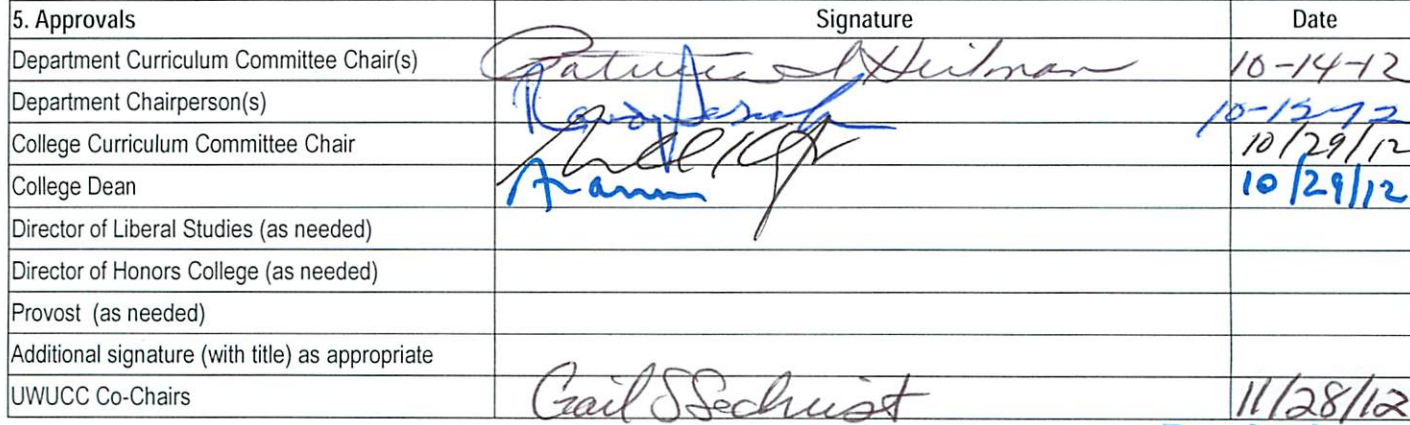 5. Approvals Signature Date
Department Curriculum Committee Chair(s) Heilman 10-14-12
Department Chairperson(s)
College Curriculum Committee Chair 10/29/12
College Dean 10/29/12
Director of Liberal Studies (as needed)
Director of Honors College (as needed)
Provost (as needed)
Additional signature (with title) as appropriate
UWUCC Co-Chairs Gail S Sechrist 11/28/12